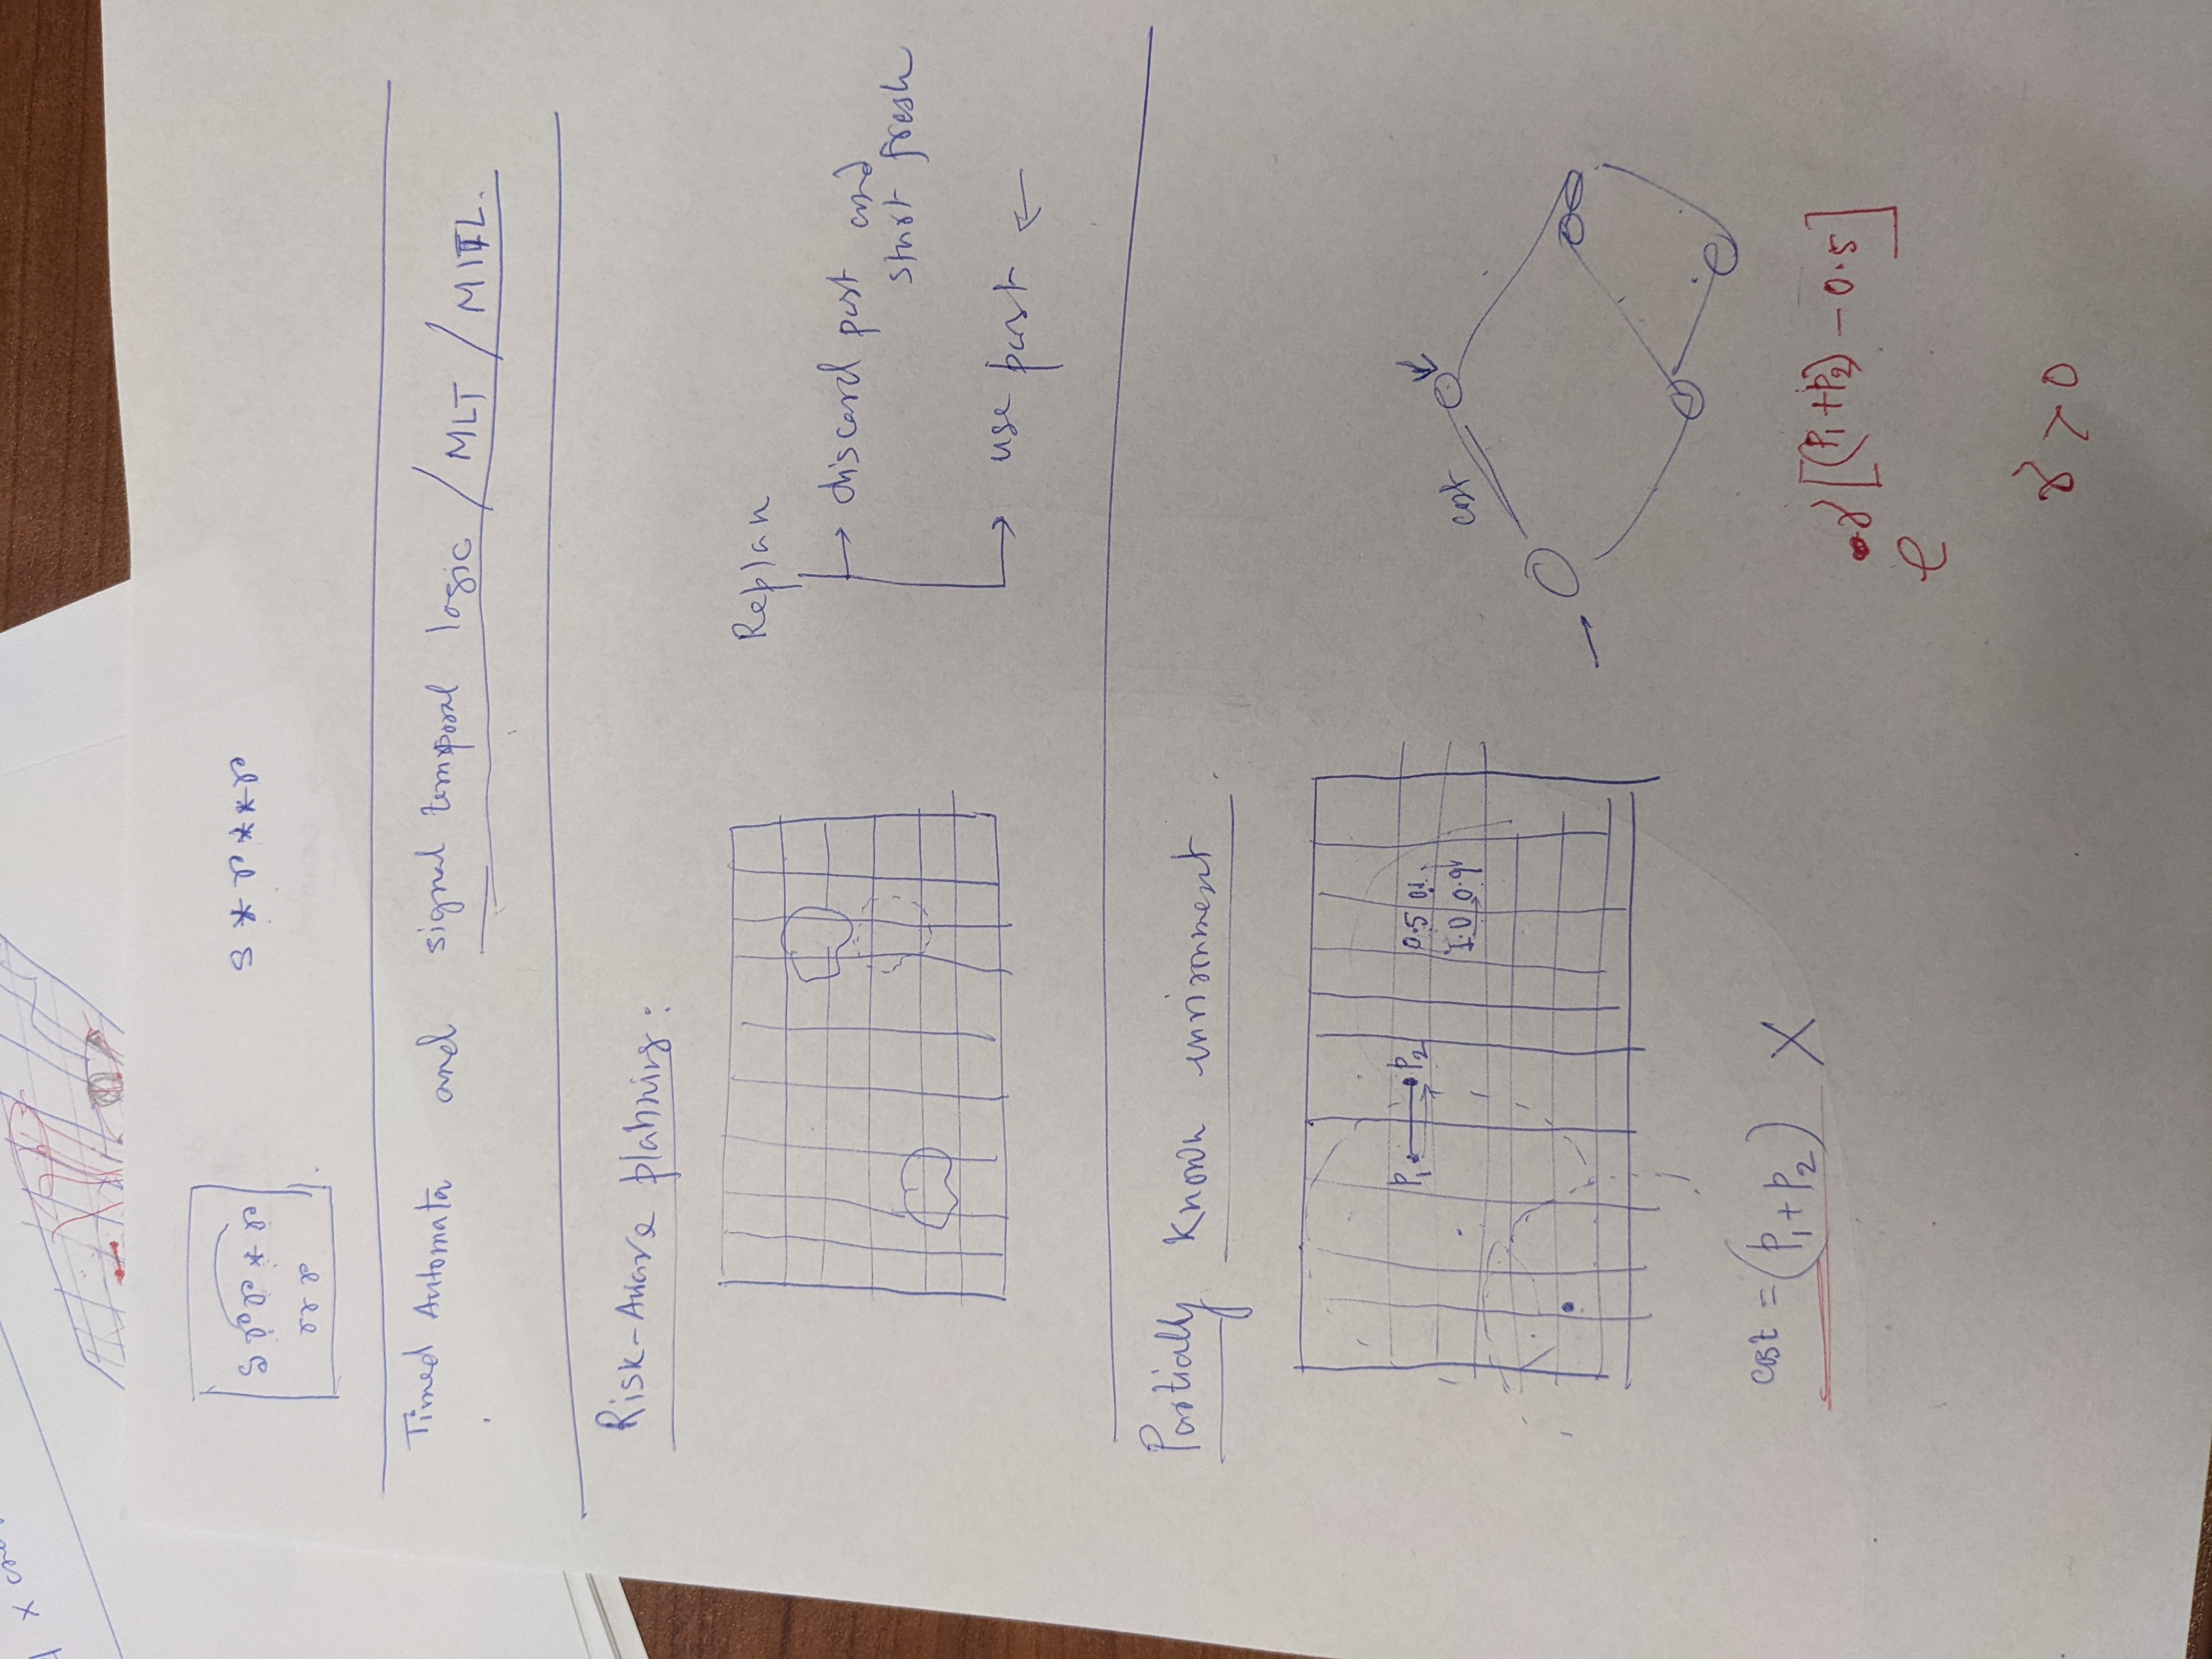 Timed Automata and signal temporal logic / MLT / MITL.
Risk-Aware planning:
Replan
→ discard past and
start fresh
→ use past ←
Partially known environment
P1 P2
0.5 0.1
1.0 0.9
cost
cost = (P1 + P2) X
e γ[(P1+P2) - 0.5]
γ > 0